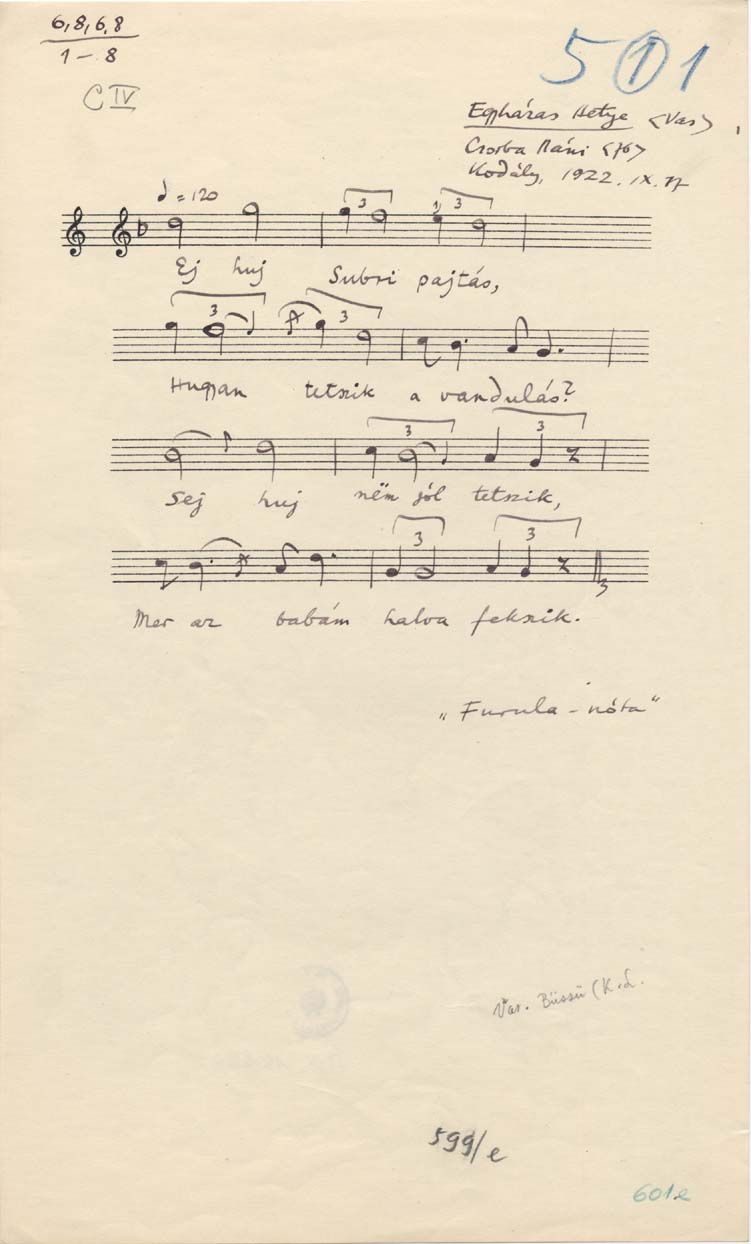 6,8,6,8
1 – 8
C IV
5 ① 1
Egyházas Hetye <Vas>
Csorba Náni <76>
Kodály, 1922. IX. 17
= 120
3 1) 3
Ej huj Subri pajtás,
3 3
Hugyan tetszik a vandulás?
3 3
Sej huj nëm jól tetszik,
3 3
Mer az babám halva fekszik.
„Furula-nóta“
Var. Büssü (K.L.
599/e
601e